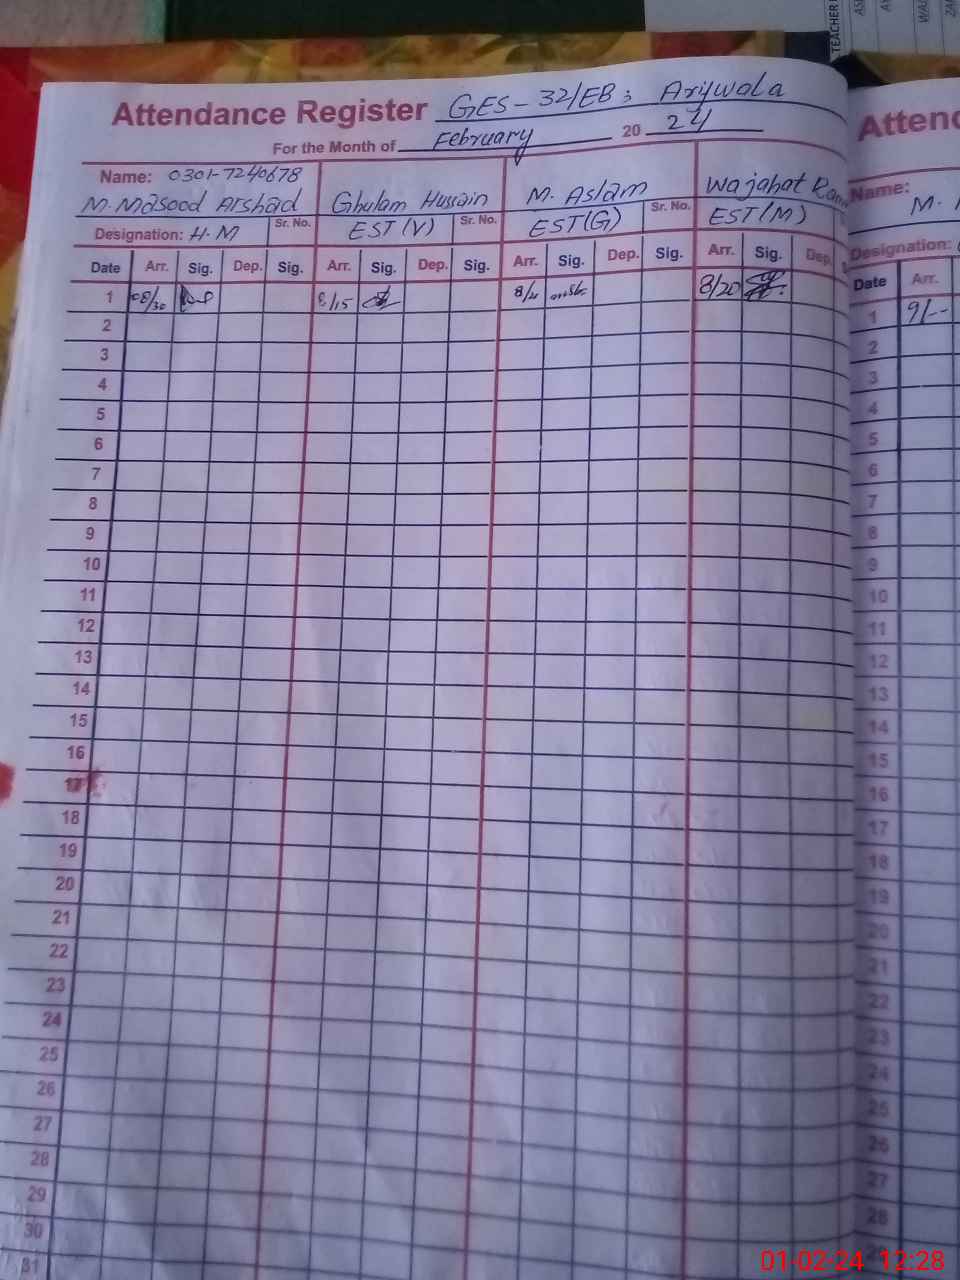 TEACHER
Attendance Register GES-32/EB; Arifwala
For the Month of February 20 24
Name: 0301-7240678
M. Masood Arshad Ghulam Hussain M. Aslam Wajahat
Designation: H.M Sr. No. EST(V) Sr. No. EST(G) Sr. No. EST(M)
Date Arr. Sig. Dep. Sig. Arr. Sig. Dep. Sig. Arr. Sig. Dep. Sig. Arr. Sig. Dep.
1 08/30 8/15 8/20 8/20
2
3
4
5
6
7
8
9
10
11
12
13
14
15
16
17
18
19
20
21
22
23
24
25
26
27
28
29
30
31
Attend
Name:
M.
Designation:
Date Arr.
1 9/--
2
3
4
5
6
7
8
9
10
11
12
13
14
15
16
17
18
19
20
21
22
23
24
25
26
27
28
01-02-24 12:28